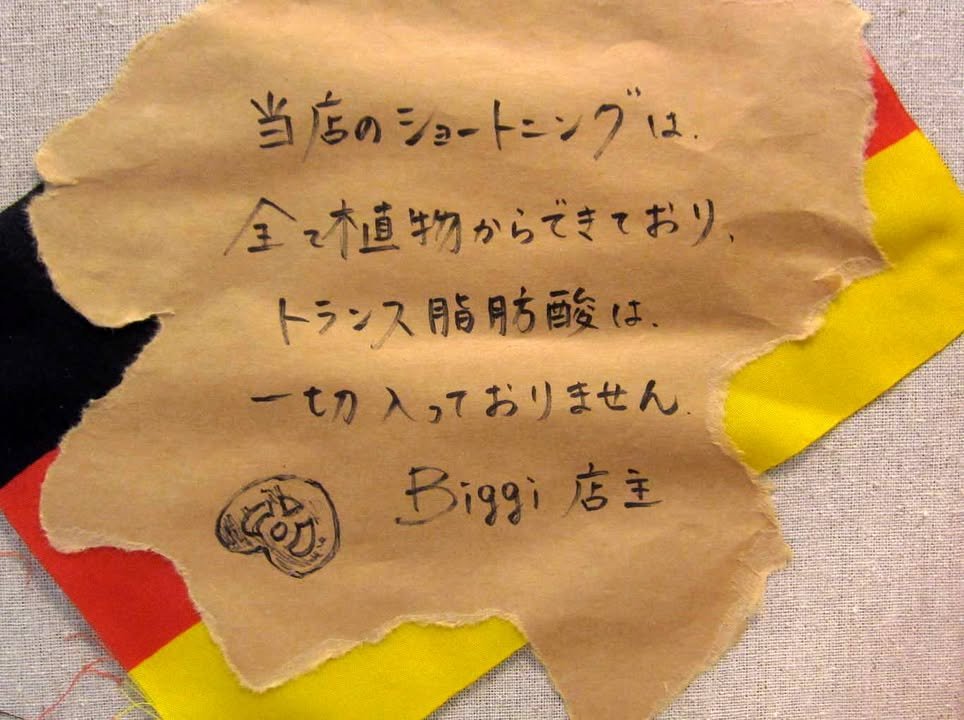 当店のショートニングは、
全て植物からできており、
トランス脂肪酸は、
一切入っておりません。
Biggi 店主